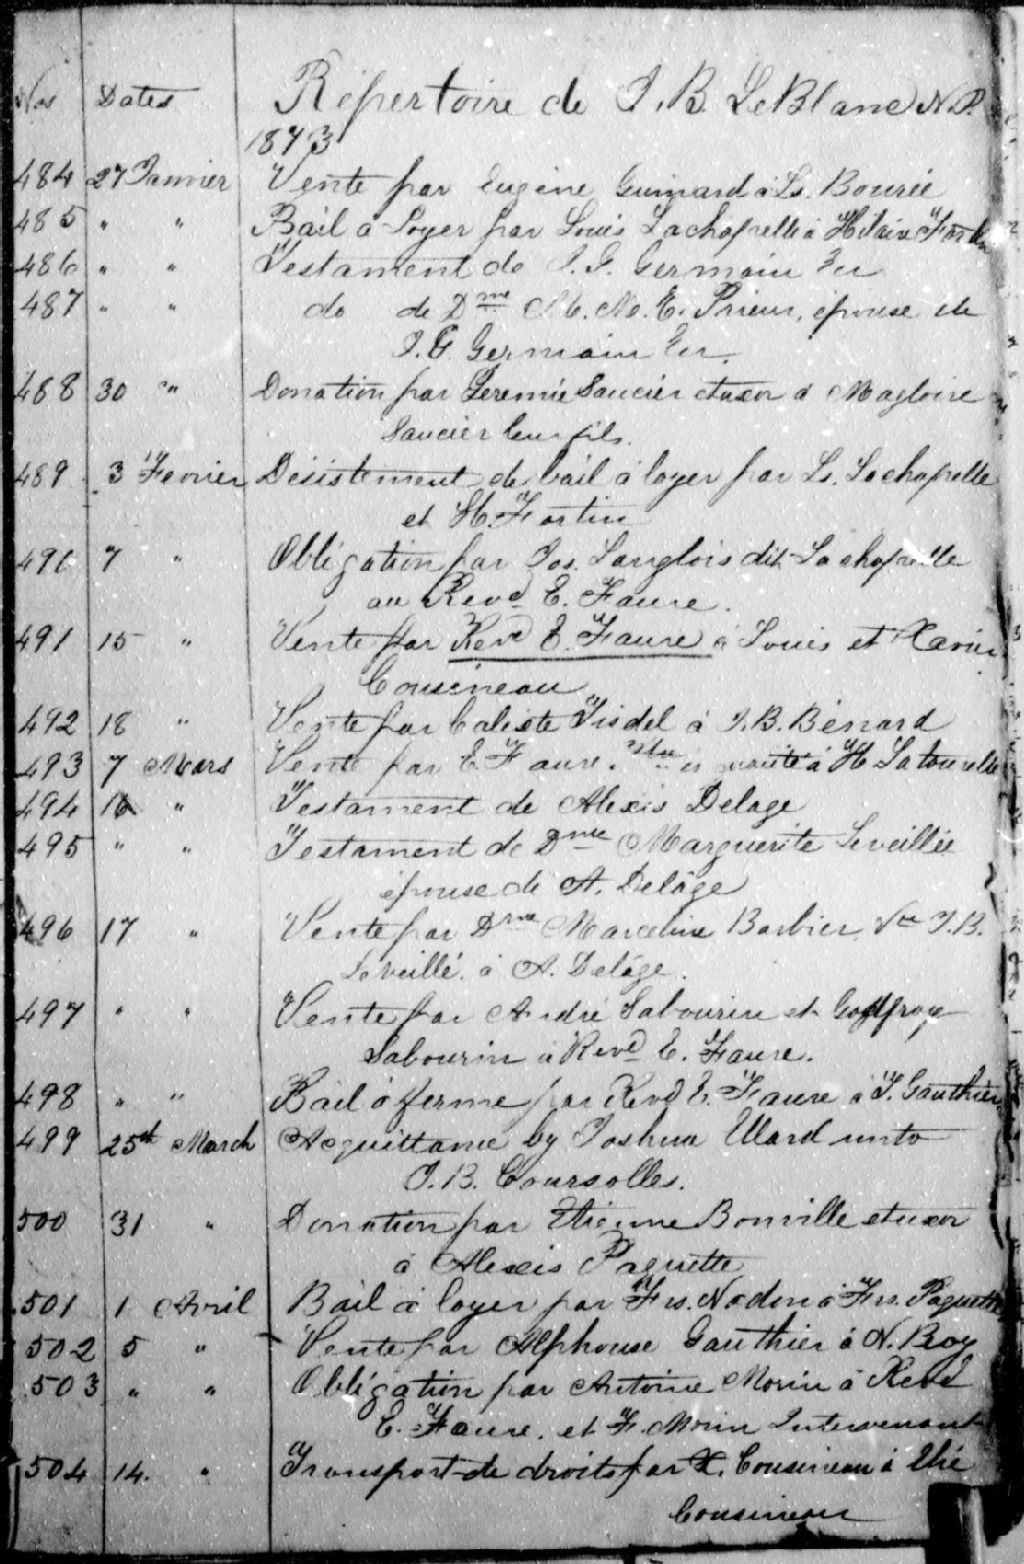 Nos Dates Répertoire de J. B. LeBlanc N.P.
1873
484 27 Janvier Vente par Eugène Guimard à Ls. Bourié
485 " " Bail à loyer par Louis Lachapelle à Hilaire Fortin
486 " " Testament de J. G. Germain Ecr
487 " " do de Dme M. M. E. Prieur, épouse de
J. G. Germain Ecr.
488 30 " Donation par Jeremie Saucier etuxor à Magloire
Saucier leur fils.
489 3 Fevrier Désistement de bail à loyer par Ls. Lachapelle
et H. Fortin
490 7 " Obligation par Jos. Langlois dit Lachapelle
au Revd E. Faure.
491 15 " Vente par Revd E. Faure à Louis et Xavier
Cousineau
492 18 " Vente par Caliste Tisdel à J. B. Bénard
493 7 Mars Vente par E. Faure à H Latourelle
494 16 " Testament de Alexis Delage
495 " " Testament de Dme Marguerite Leveillée
épouse de A. Delâge
496 17 " Vente par Dme Marceline Barbier Ve J. B.
Leveillé à A. Delâge.
497 " " Vente par André Sabourin et Godfroye
Sabourin à Revd E. Faure.
498 " " Bail à ferme par Revd E. Faure à T. Gauthier
499 25th March Acquittance by Joshua Ellard unto
J. B. Coursolles.
500 31 " Donation par Etienne Bonville etuxor
à Alexis Paquette
501 1 Avril Bail à loyer par Frs. Nadon à Frs. Paquette
502 5 " Vente par Alphonse Gauthier à N. Roy
503 " " Obligation par Antoine Morin à Revd
E. Faure. et F. Morin Intervenant
504 14. " Transport de droits par X. Cousineau à
Cousineau